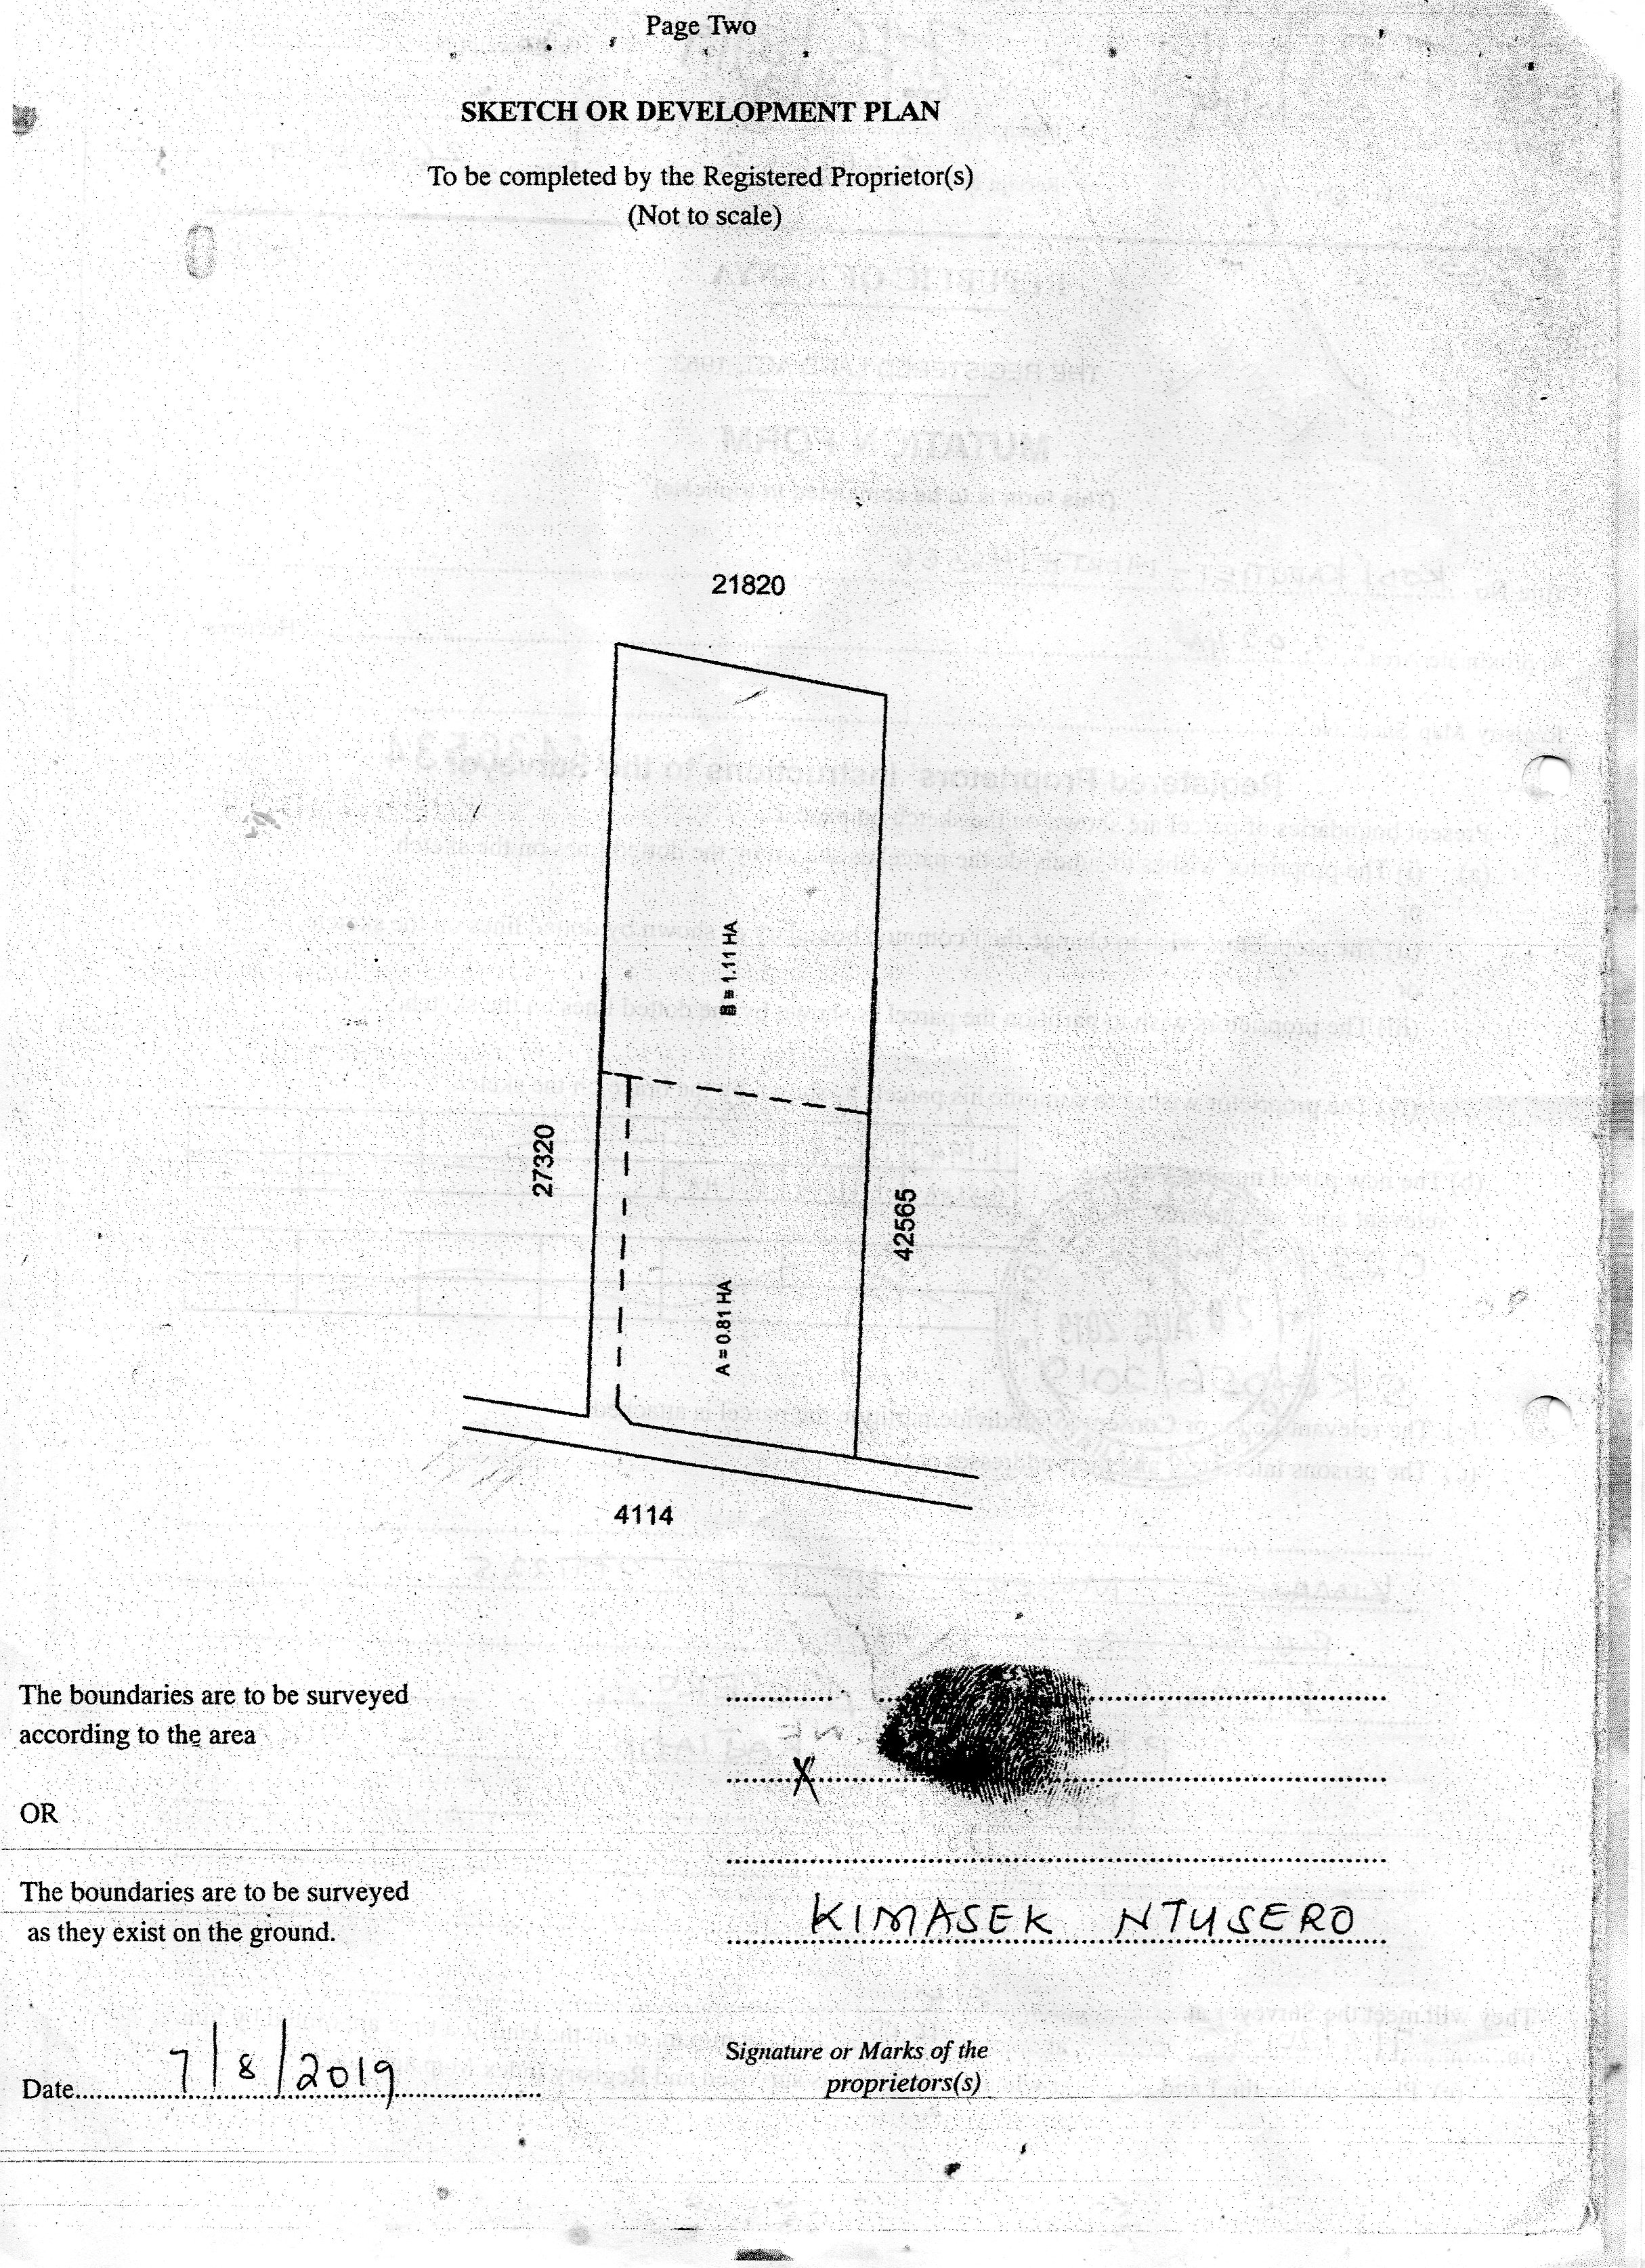 Page Two
SKETCH OR DEVELOPMENT PLAN
To be completed by the Registered Proprietor(s)
(Not to scale)
21820
B = 1.11 HA
27320
42565
A = 0.81 HA
4114
The boundaries are to be surveyed
according to the area
X
OR
The boundaries are to be surveyed
as they exist on the ground.
KIMASEK NTUSERO
Date 7/8/2019
Signature or Marks of the
proprietors(s)